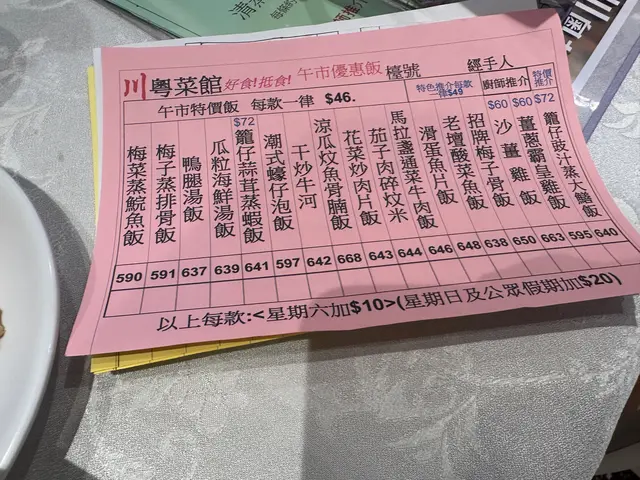 川粵菜館 好食!抵食! 午市優惠飯 檯號 經手人
午市特價飯 每款一律 $46.
特色推介每款一律$49
廚師推介
特價推介
$72
$60
$60
$72
梅菜蒸鯇魚飯
梅子蒸排骨飯
鴨腿湯飯
瓜粒海鮮湯飯
籠仔蒜茸蒸蝦飯
潮式蠔仔泡飯
干炒牛河
涼瓜炆魚骨腩飯
花菜炒肉片飯
茄子肉碎炆米
馬拉盞通菜牛肉飯
滑蛋魚片飯
老壇酸菜魚飯
招牌梅子骨飯
沙薑雞飯
薑蔥霸皇雞飯
籠仔豉汁蒸大鱔飯
590 591 637 639 641 597 642 668 643 644 646 648 638 650 663 595 640
以上每款:<星期六加$10>(星期日及公眾假期加$20)